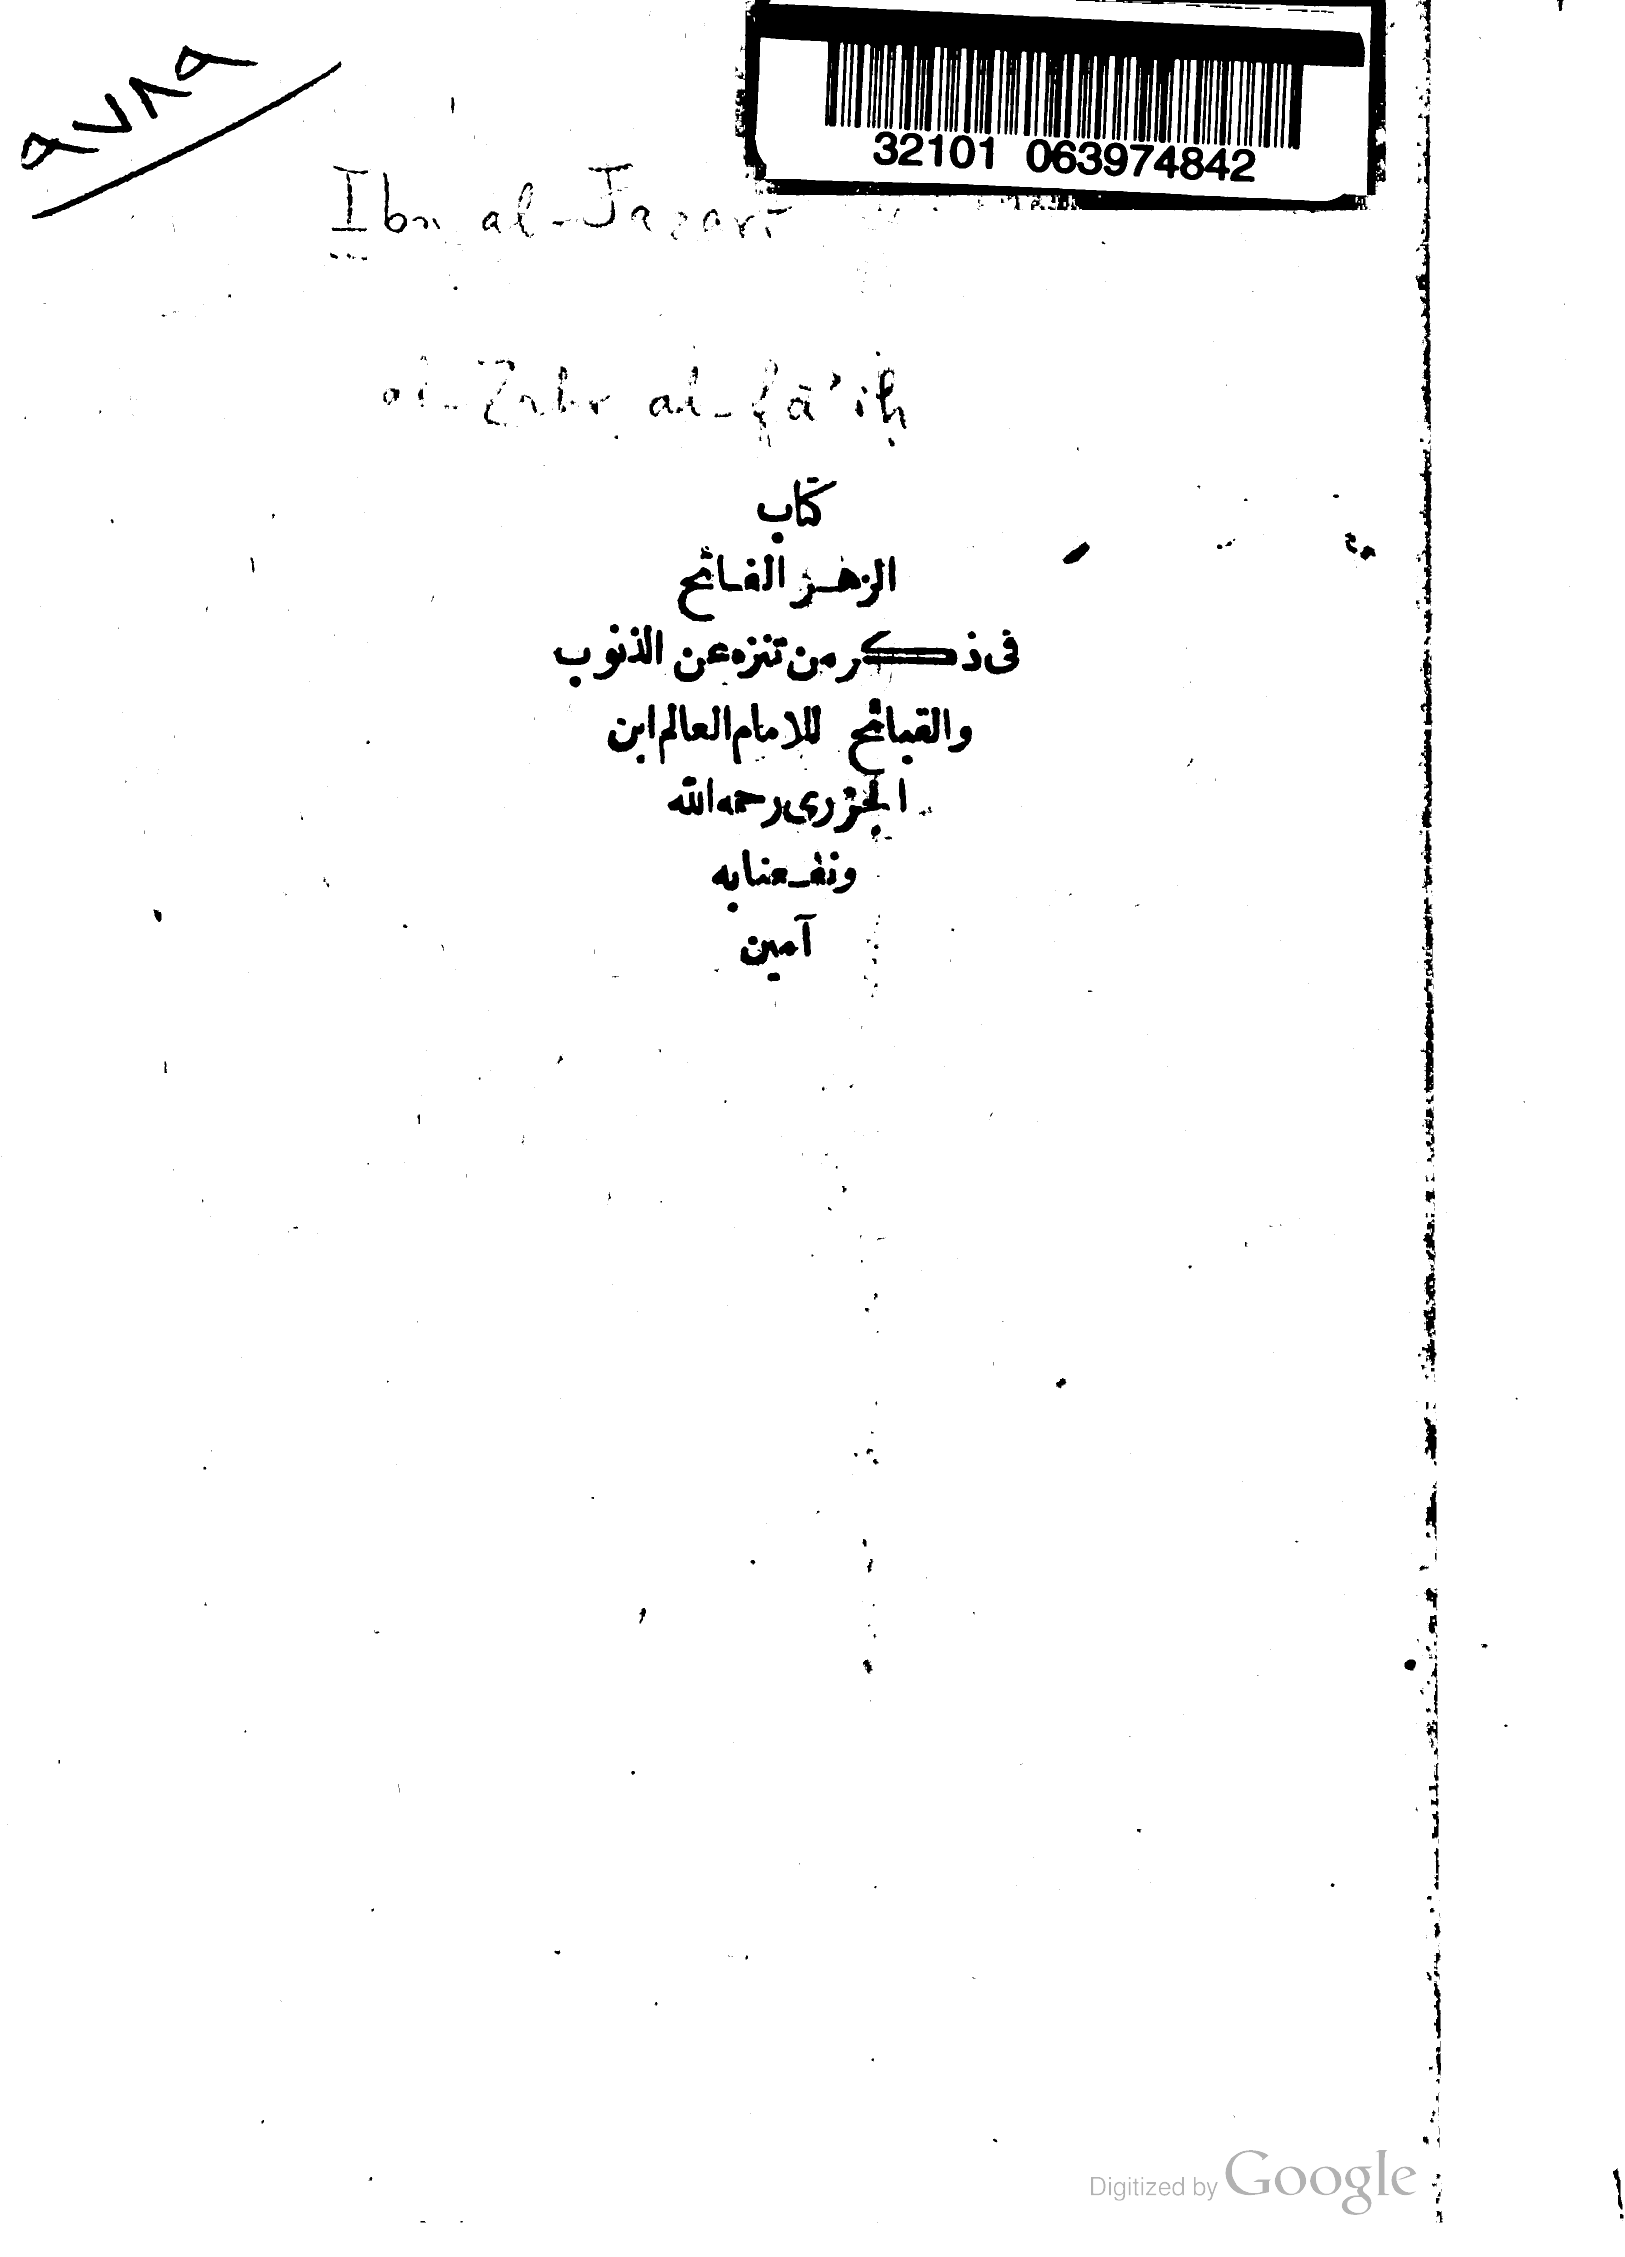 ٩٧٨٩
32101 063974842
Ibn al-Jazarī
al-Zahr al-fā'iḥ
كتاب
الزهر الفائح
فى ذكر من تنزه عن الذنوب
والقبائح للامام العالم ابن
الجزرى رحمه الله
ونفعنا به
آمين
Digitized by Google